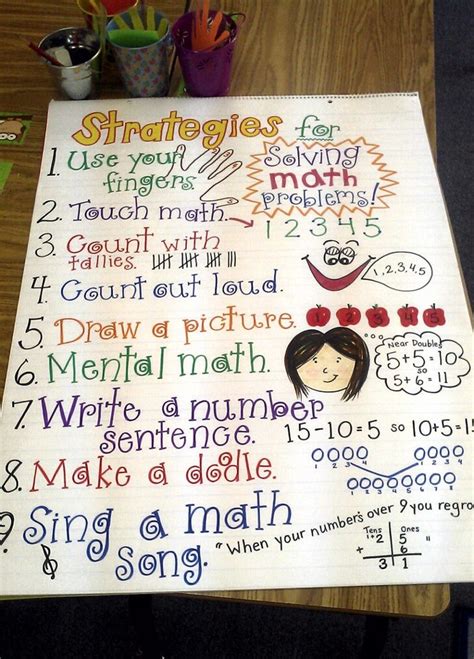 Strategies for
Solving
math
problems!
1. Use your
fingers.
2. Touch math.
1 2 3 4 5
3. Count with
tallies.
1, 2, 3, 4, 5
4. Count out loud.
5. Draw a picture.
1 2 3 4 5
6. Mental math.
Near Doubles
5+5=10
so
5+6=11
7. Write a number
sentence.
15-10=5 so 10+5=15
8. Make a dodle.
9. Sing a math
song.
"When your numbers over 9 you regro
Tens Ones
1+2 5
+ 6
3 1 "